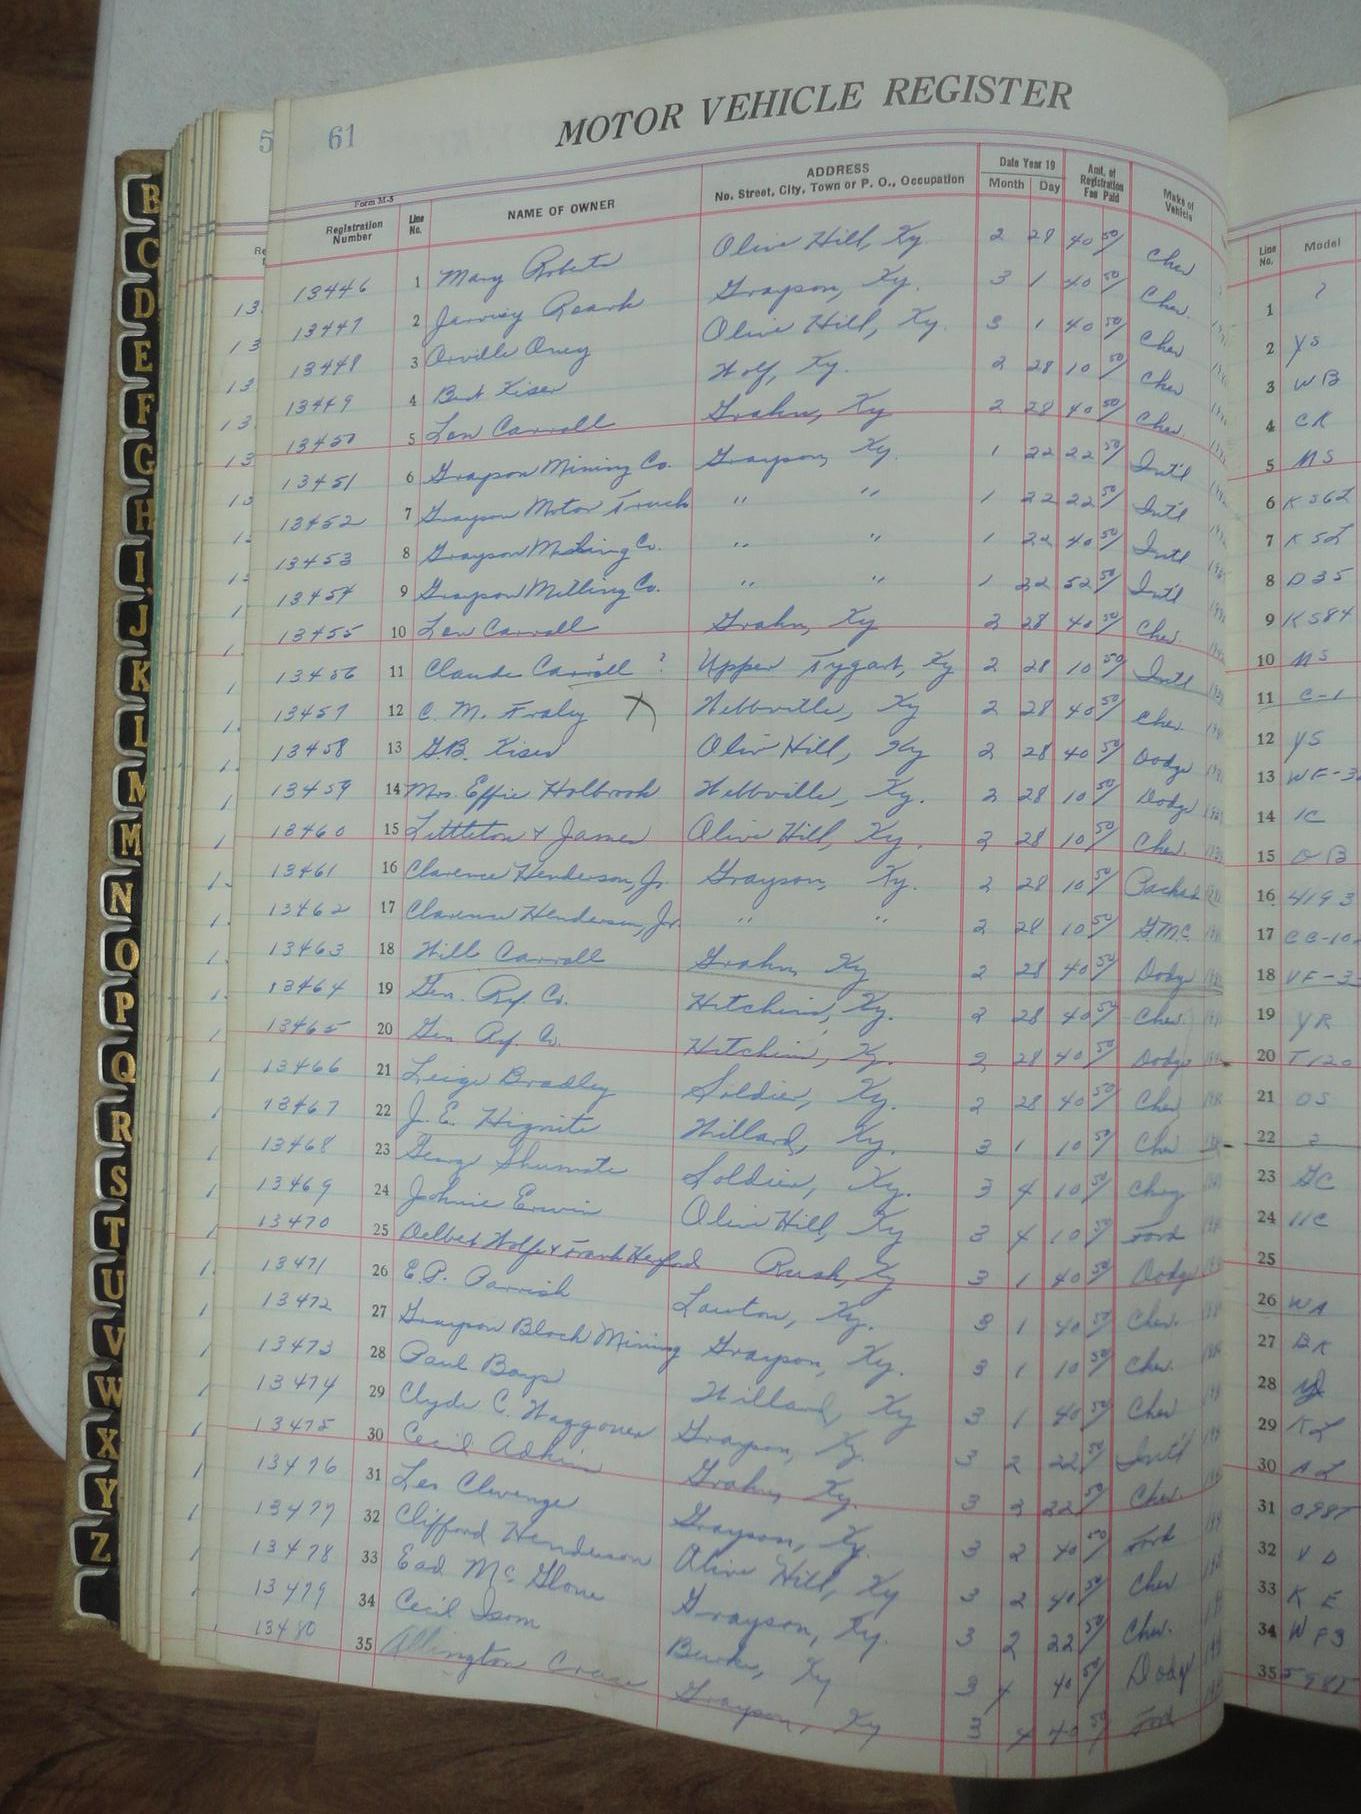 61 MOTOR VEHICLE REGISTER
Form M-5
Registration Number Line No. NAME OF OWNER ADDRESS No. Street, City, Town or P. O., Occupation Date Year 19 Month Day Amt. of Registration Fee Paid Make of Vehicle Line No. Model
13446 1 Mary Roberts Olive Hill, Ky. 2 28 40 50 Chev 1 ?
13447 2 Roark Grayson, Ky. 3 1 40 50 Chev. 2 YS
13448 3 Orville Oney Olive Hill, Ky. 3 1 40 50 Chev 3 WB
13449 4 Kiser Wolf, Ky. 2 28 10 50 Chev 4 CK
13450 5 Lon Carroll Grahn, Ky 2 28 40 50 Chev. 5 MS
13451 6 Grayson Mining Co. Grayson, Ky. 1 22 22 50 Int'l 6
13452 7 Grayson Motor Truck " " 1 22 22 50 Int'l 7
13453 8 Grayson Co. " " 1 22 40 50 Int'l 8 D35
13454 9 Grayson Milling Co. " " 1 22 52 50 Int'l 9 K584
13455 10 Lon Carroll Grahn, Ky 2 28 40 50 Chev 10 MS
13456 11 Claude Carroll ? Upper Tygart, Ky 2 28 10 50 Int'l 11 C-1
13457 12 C. M. Fraley X Webbville, Ky 2 28 40 50 Chev. 12 YS
13458 13 G.B. Kiser Olive Hill, Ky 2 28 40 50 Dodge 13 WF-3
13459 14 Mrs. Effie Holbrook Webbville, Ky. 2 28 10 50 Dodge 14 1C
13460 15 Littleton & James Olive Hill, Ky. 2 28 10 50 Chev. 15
13461 16 Clarence Henderson, Jr. Grayson, Ky. 2 28 10 50 Packard 16 4193
13462 17 Clarence Henderson, Jr. " " 2 28 10 50 GMC 17 CC-10
13463 18 Will Carroll Grahn, Ky 2 28 40 50 Dodge 18 VF-3
13464 19 Gen. Ref Co. Hitchins, Ky. 2 28 40 50 Chev. 19 YR
13465 20 Gen Ref. Co. Hitchins, Ky. 2 28 40 50 Dodge 20 T120
13466 21 Leige Bradley Soldier, Ky. 2 28 40 50 Chev 21 OS
13467 22 J. E. Hignite Willard, Ky. 3 1 10 50 Chev 22 ?
13468 23 Shumate Soldier, Ky. 3 4 10 50 Chev 23 GC
13469 24 Johnie Erwin Olive Hill, Ky 3 4 10 50 Ford 24 11C
13470 25 Delbert Wolfe & Frank Rush, Ky 3 1 40 50 Dodge 25
13471 26 E.P. Parrish Lawton, Ky. 3 1 40 50 Chev. 26 WA
13472 27 Grayson Block Mining Grayson, Ky. 3 1 10 50 Chev. 27 BK
13473 28 Paul Bays Willard, Ky 3 1 40 50 Chev 28
13474 29 Clyde C. Waggoner Grayson, Ky. 3 2 22 50 Int'l 29 KL
13475 30 Cecil Adkins Grahn, Ky. 3 2 22 50 Chev. 30 AL
13476 31 Les Clevenger Grayson, Ky. 3 2 40 50 Ford 31 098T
13477 32 Clifford Henderson Olive Hill, Ky 3 2 40 50 Chev 32 VD
13478 33 Ead McGlone Grayson, Ky. 3 2 22 50 Chev. 33 KE
13479 34 Cecil Isom Ky 3 4 40 50 Dodge 34 WF3
13480 35 Allington Grayson, Ky 3 4 40 50 Ford 35 598T
B
C
D
E
F
G
H
I
J
K
L
M
M
N
O
P
Q
R
S
T
U
V
W
X
Y
Z